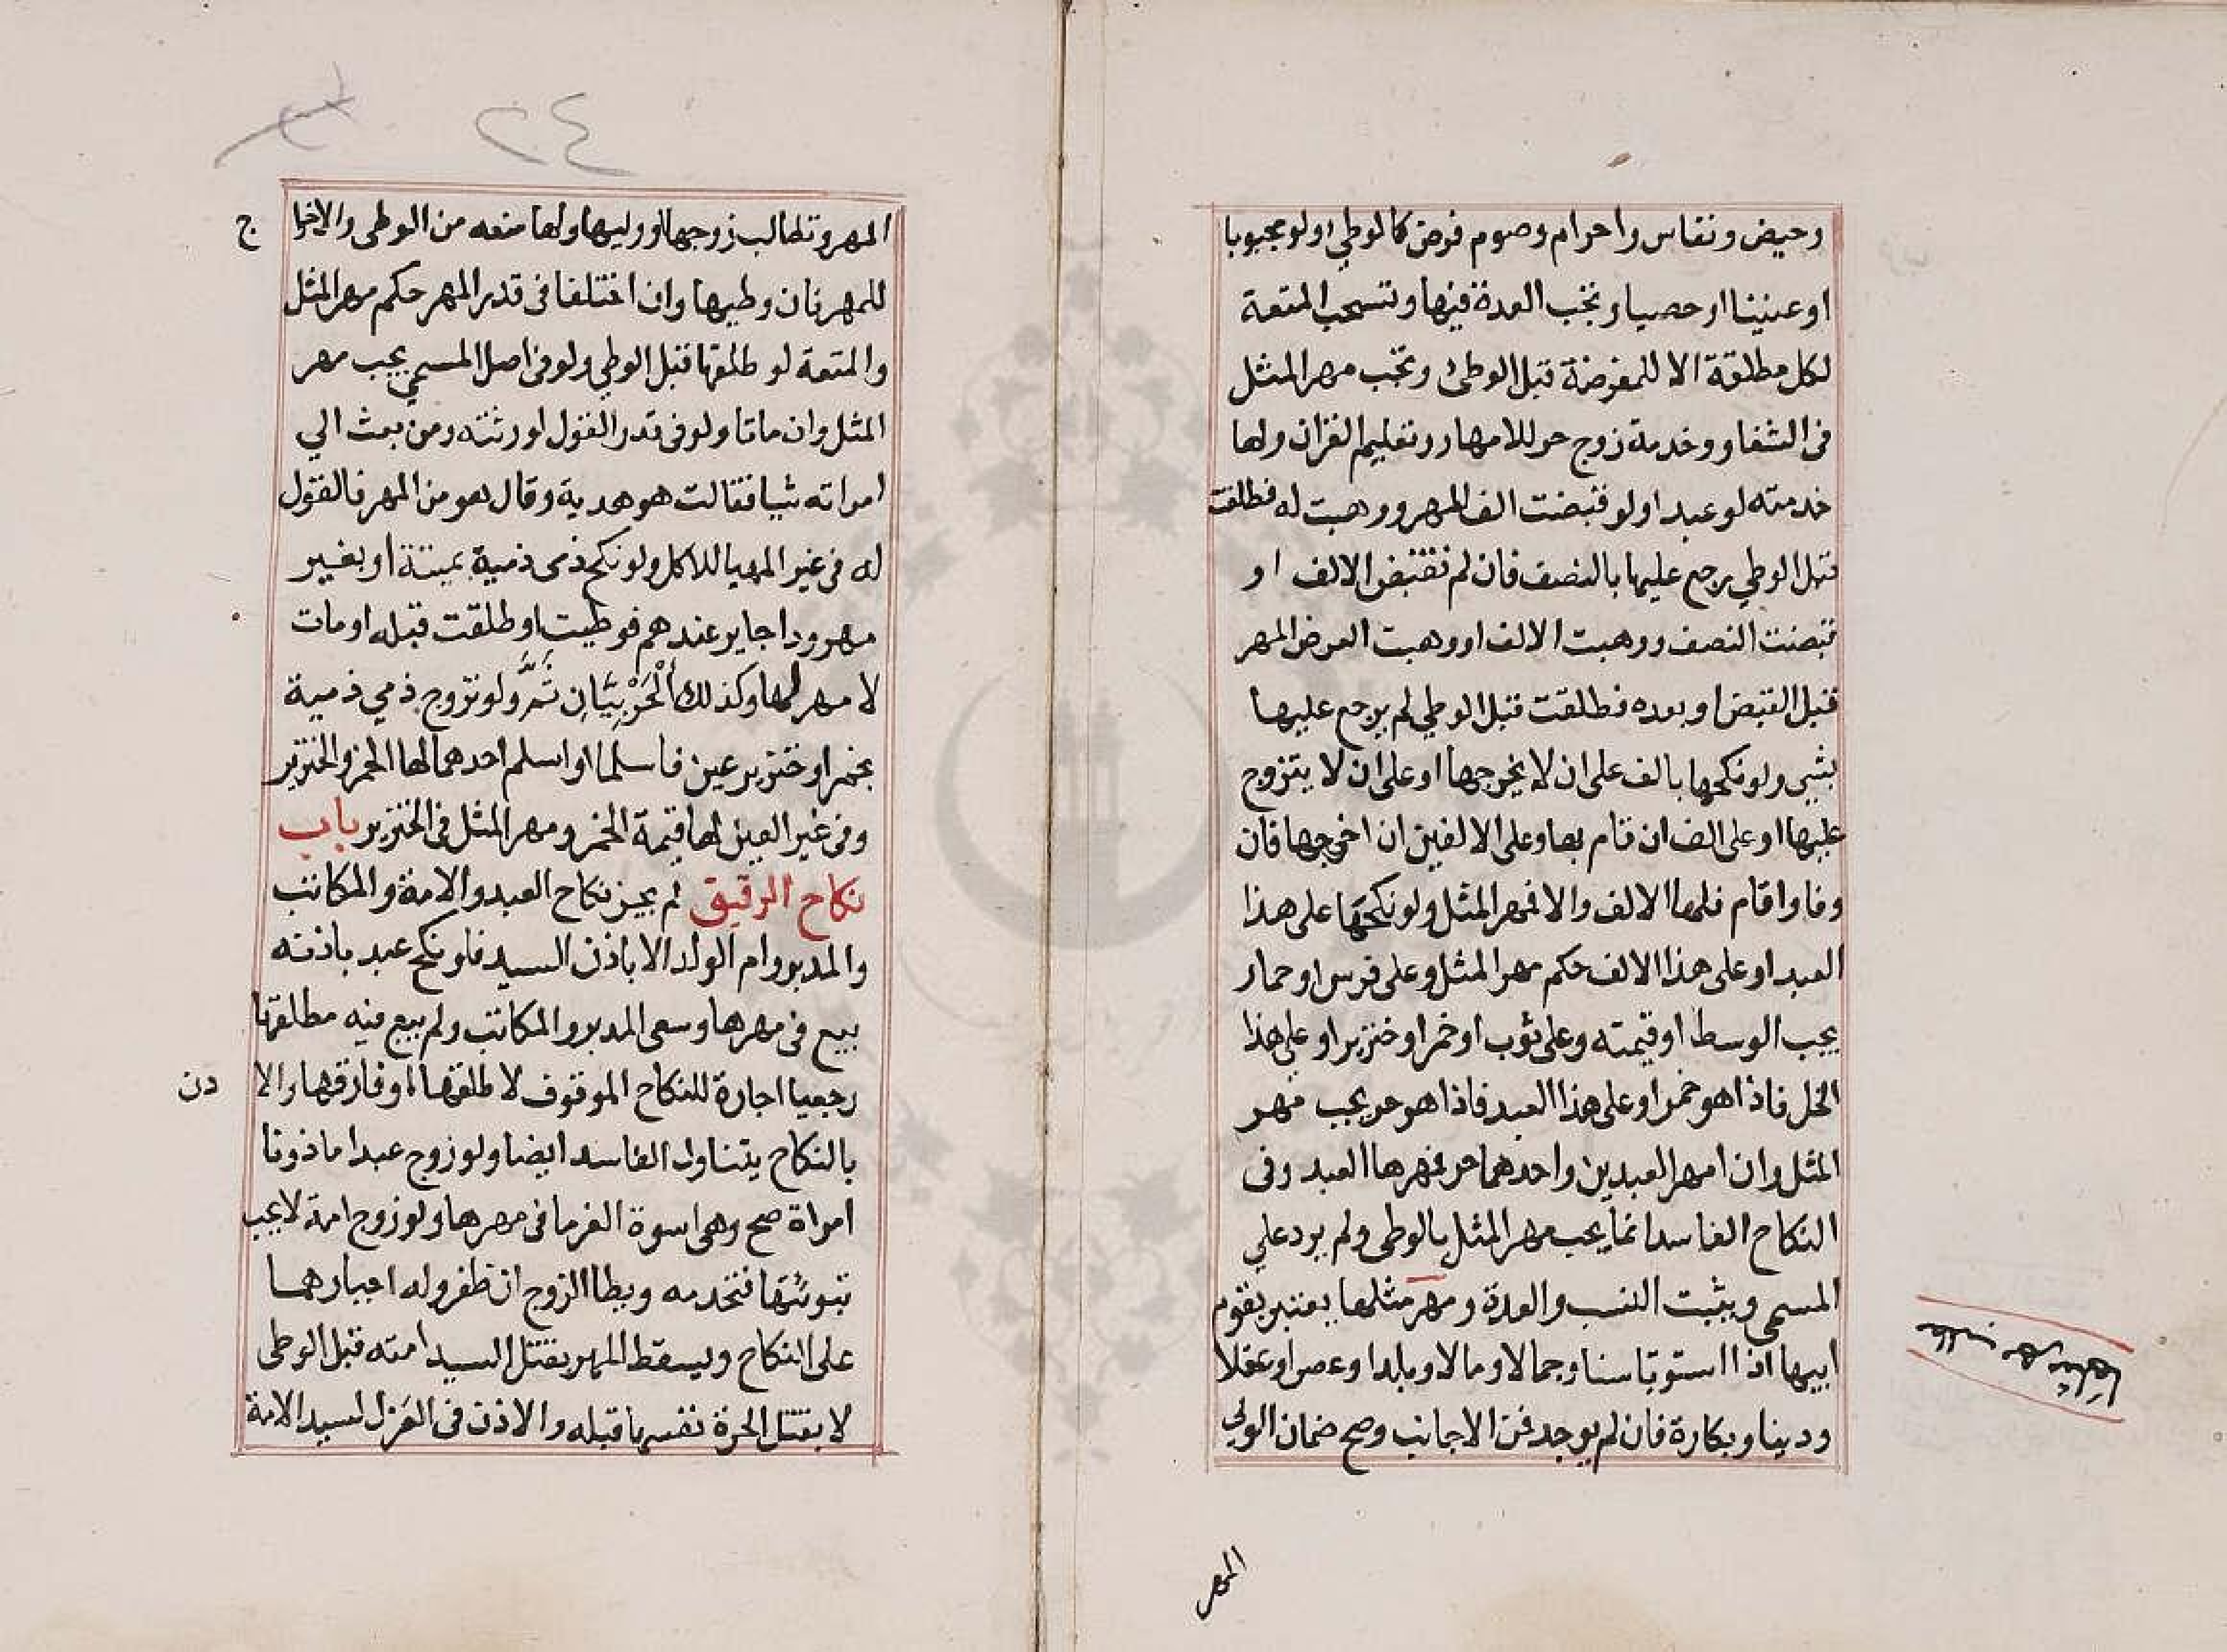 وحيض ونفاس واحرام وصوم فرض كالوطي ولو مجبوبا
او عنينا او خصيا وتجب العدة فيها وتستحب المتعة
لكل مطلقة الا للمفوضة قبل الوطئ وتجب مهر المثل
في الشغار وخدمة زوج حر للامهار وتعليم القران ولها
خدمته لو عبدا ولو قبضت الف المهر ووهبت له فطلقت
قبل الوطي يرجع عليها بالنصف فان لم تقبض الالف او
قبضت النصف ووهبت الالف او وهبت العرض المهر
قبل القبض او بعده فطلقت قبل الوطي لم يرجع عليها
بشي ولو نكحها بالف على ان لا يخرجها او على ان لا يتزوج
عليها او على الف ان قام بها وعلى الالفين ان اخرجها فان
وفا واقام فلها الالف والا فمهر المثل ولو نكحها على هذا
العبد او على هذا الالف حكم مهر المثل وعلى فرس او حمار
يجب الوسط او قيمته وعلى ثوب او خمر او خنزير او على هذا
الخل فاذا هو خمر او على هذا العبد فاذا هو حر يجب مهر
المثل وان امهر العبدين واحدهما حر فمهرها العبد وفى
النكاح الفاسد انما يجب مهر المثل بالوطى ولم يرد على
المسمى ويثبت النسب والعدة ومهر مثلها يعتبر بقوم
ابيها اذا استوتا سنا وجمالا ومالا وبلدا وعصرا وعقلا
ودينا وبكارة فان لم يوجد فمن الاجانب وصح ضمان الولي
مطلب مهر مثلها
المهر
٤٢
المهر وتطالب زوجها او وليها ولها منعه من الوطى والاخرا ج
للمهر فان وطيها وان اختلفا فى قدر المهر حكم مهر المثل
والمتعة لو طلقها قبل الوطي ولو فى اصل المسمي يجب مهر
المثل وان ماتا ولو فى قدر القول لورثته ومن بعث الي
امراته شيا فقالت هو هدية وقال هو من المهر فالقول
له فى غير المهيا للاكل ولو نكح ذمى ذمية بميتة او بغير
مهر وذا جايز عندهم فوطيت او طلقت قبله او مات
لا مهر لها وكذلك الحَرْبِيَّانِ ثَمَّ ولو تزوج ذمي ذمية
بخمر او خنزير عين فاسلما او اسلم احدهما لها الخمر والخنزير
وفى غير العين لها قيمة الخمر ومهر المثل فى الخنزير باب
نكاح الرقيق لم يجز نكاح العبد والامة والمكاتب
والمدبر وام الولد الا باذن السيد فلو نكح عبد باذنه
بيع فى مهرها وسعى المدبر والمكاتب ولم يبع فيه مطلقها
رجعيا اجازة للنكاح الموقوف لا طلقها او فارقها والا ذن
بالنكاح يتناول الفاسد ايضا ولو زوج عبدا ماذونا
امراة صح وهى اسوة الغرما فى مهرها ولو زوج امة لا يجب
تبوئتها فتخدمه ويطا الزوج ان ظفر وله اجبارهما
على النكاح ويسقط المهر بقتل السيد امته قبل الوطى
لا بقتل الحرة نفسها قبله والاذن فى العَزل لسيد الامة